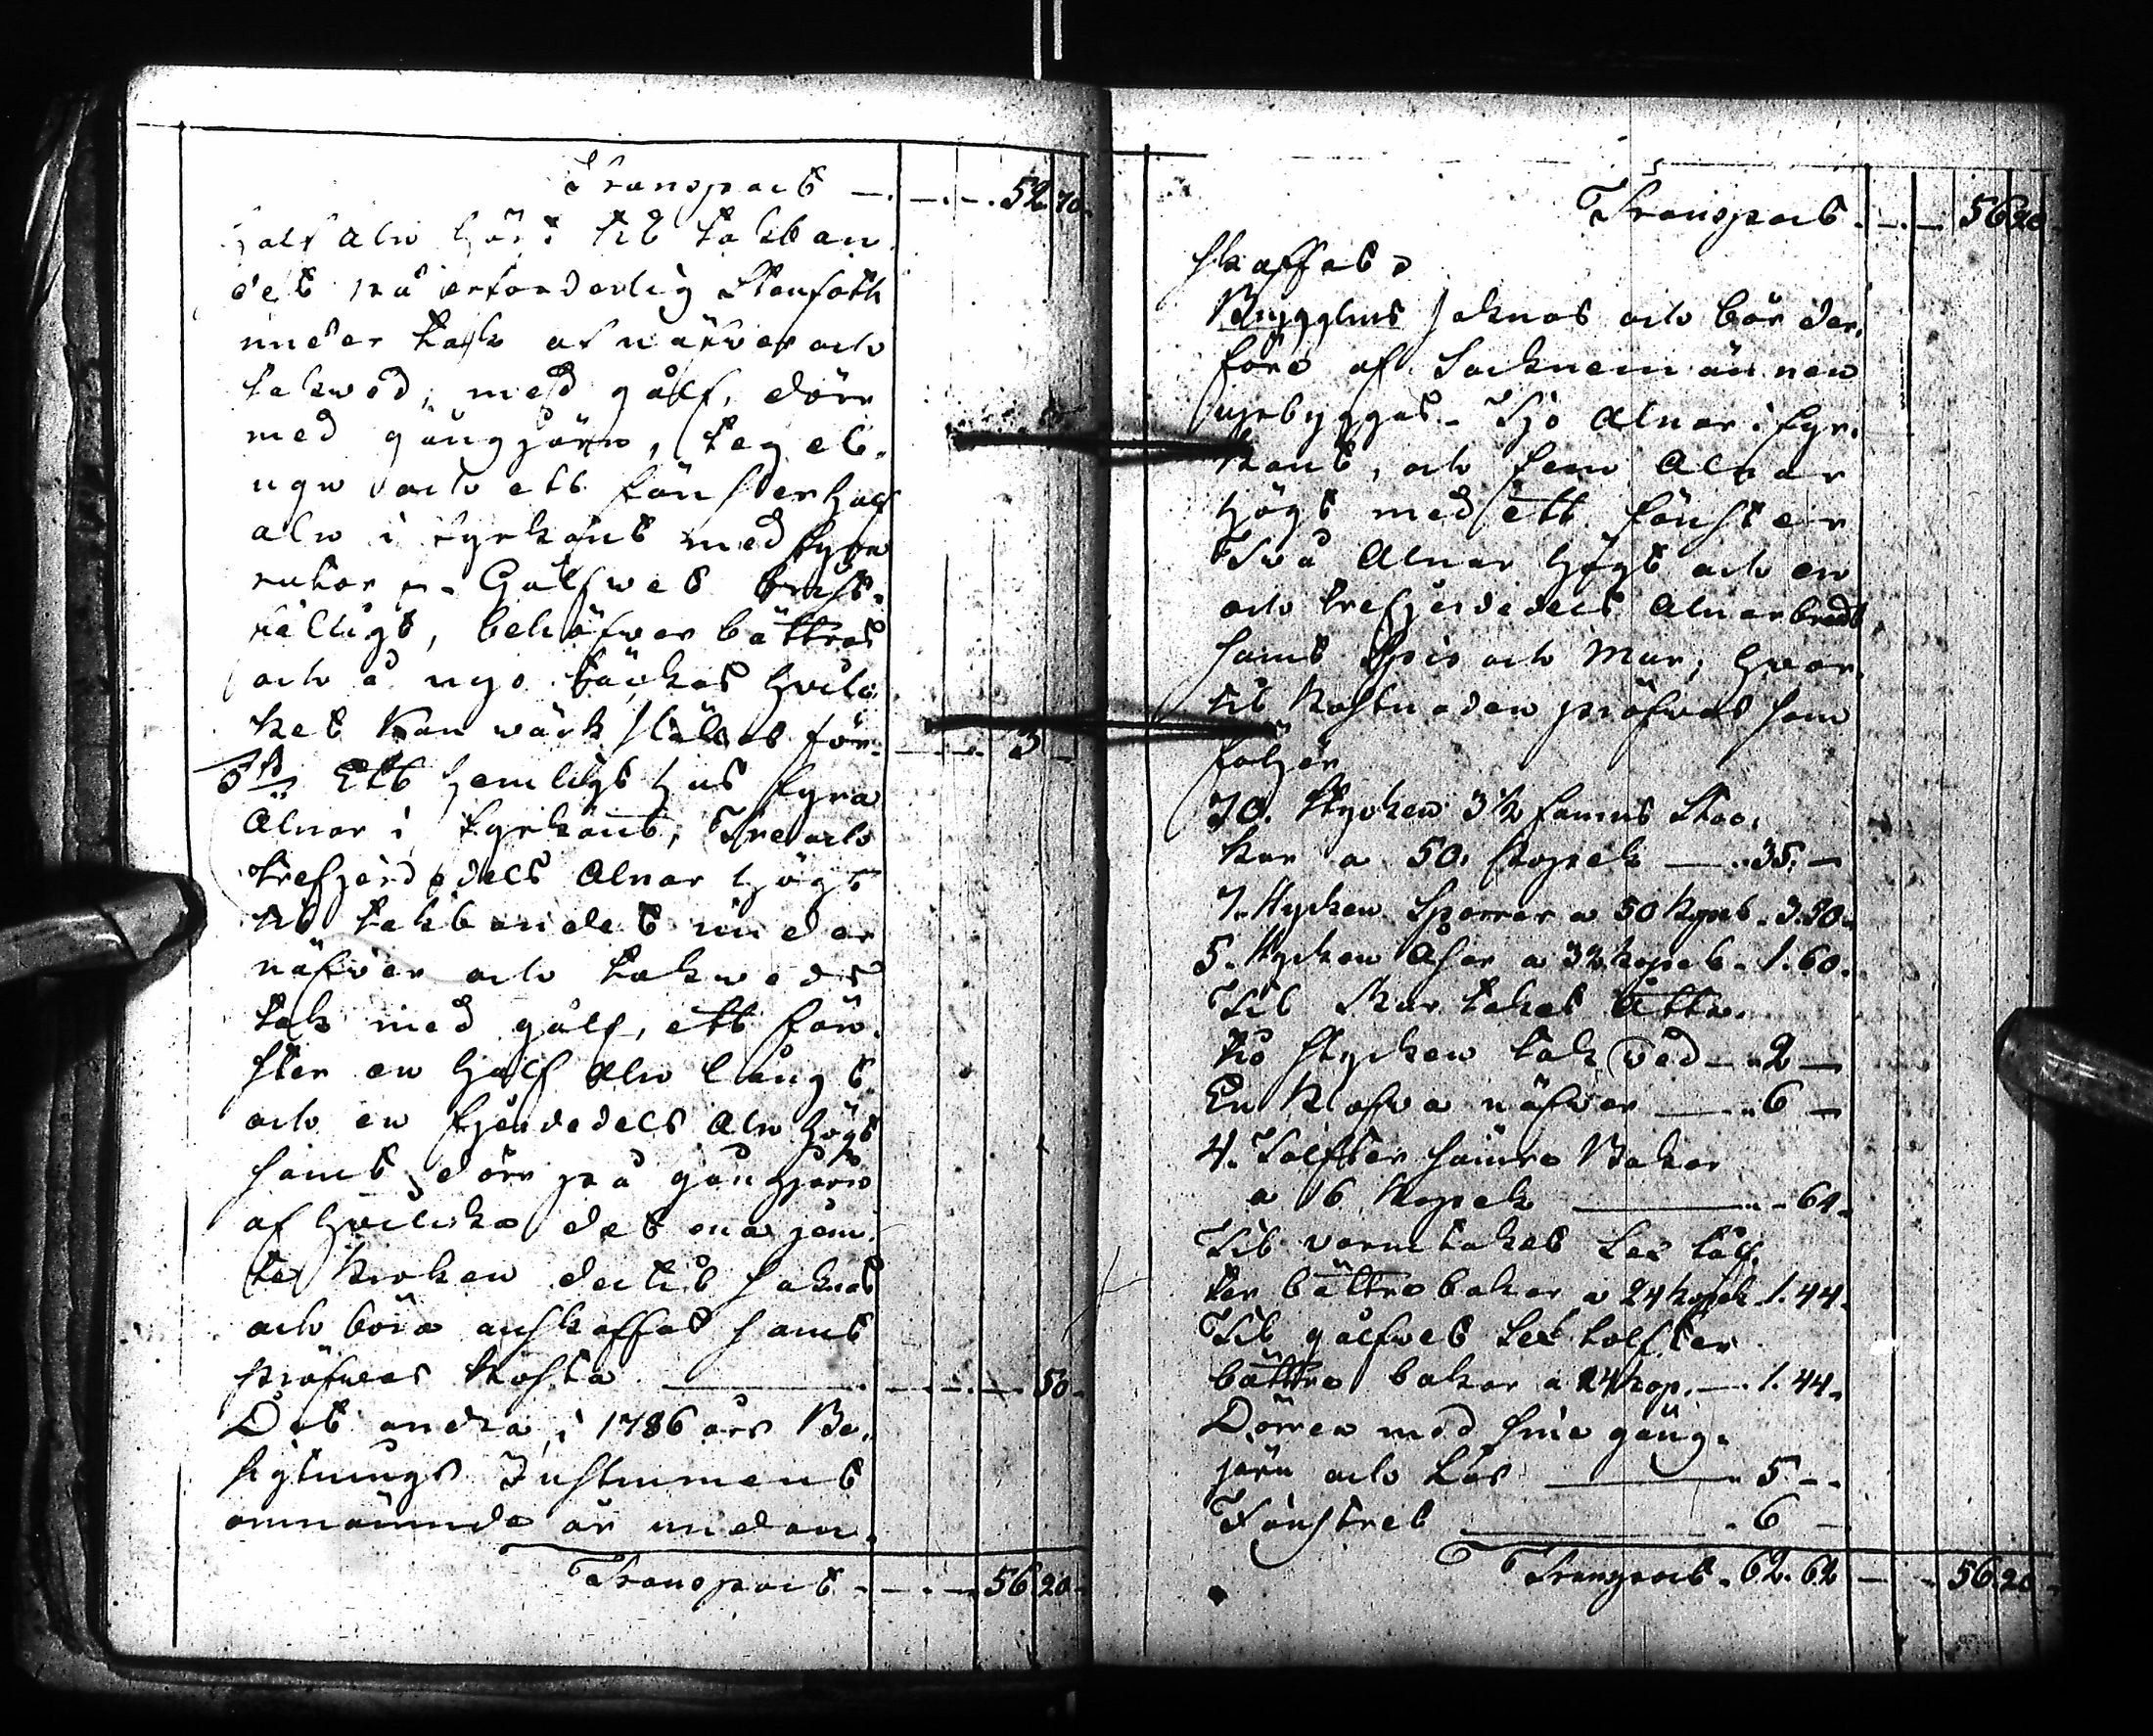 Transport — . — . — . 52. 70.
half aln högt til takban
det på erforderlig Stenfoth
under tak af näfver och
takwed, med gålf, dörr
med gångjärn, tegel-
ugn och ett fönster half
aln i fyrkant med fyra
rutor. Gålfwet brist-
fälligt, behöfwer bättras
och å nyo täckas hwil-
ket kan wärkställas för — . — . 3 —
Ett hemligt hus fyra
Alnar i fyrkant, Tre och
trefjerdedels Alnar högt
til takbandet under
näfver och takweds
tak med gålf, ett fön-
ster en half Aln långt
och en fjerdedels Aln högt
samt dörr på gångjärn
af hwilka det ena jem-
te kroken dertil saknas
och böra anskaffas samt
pröfwas kosta — . — . — . — 50.
Det andra, i 1786 års Be-
sigtnings Instrument
omnämnde är undan-
Transport — . — . — 56. 20.
skaffat.
Transport . — . — 56 20
Brygghus saknas och bör der-
före af Socknemännen
uppbyggas. Tjo Alnar i fyr-
kant, och fem Alnar
högt med ett fönster
Twå Alnar högt och en
och trefjerdedels Alnar bredt
samt Spis och Mur, hwar-
til kostnaden pröfwas som
följer
70. Stycken 3½ famns Stoc-
kar a 50. kopek — . 35. —
7. Stycken Sparrar a 50 kopek . 3. 50.
5. Stycken Åsar a 32 kopek . 1. 60.
Til taket Åtta-
tio stycken takwed — . 2 —
En näfver — . 6 —
4. Tolfter sämre Bakar
a 16 kopek — . — 64.
Til varmtaket sex tolf-
ter bättre bakar a 24 kopek . 1. 44.
Til gålfwet sex tolfter
bättre bakar a 24 kop. — . 1. 44.
Dörren med sine gång-
järn och lås — 5 — .
Fönstret — . 6 —
Transport . 62. 62 — . 56. 20.